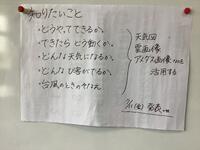 知りたいこと
・どうやってできるか。
・できたら どう動くか。
・どんな天気になるか。
・どんなひ害がでるか。
・台風のときのそなえ
天気図
雲画像
アメダス画像などを
活用する
(金) 発表